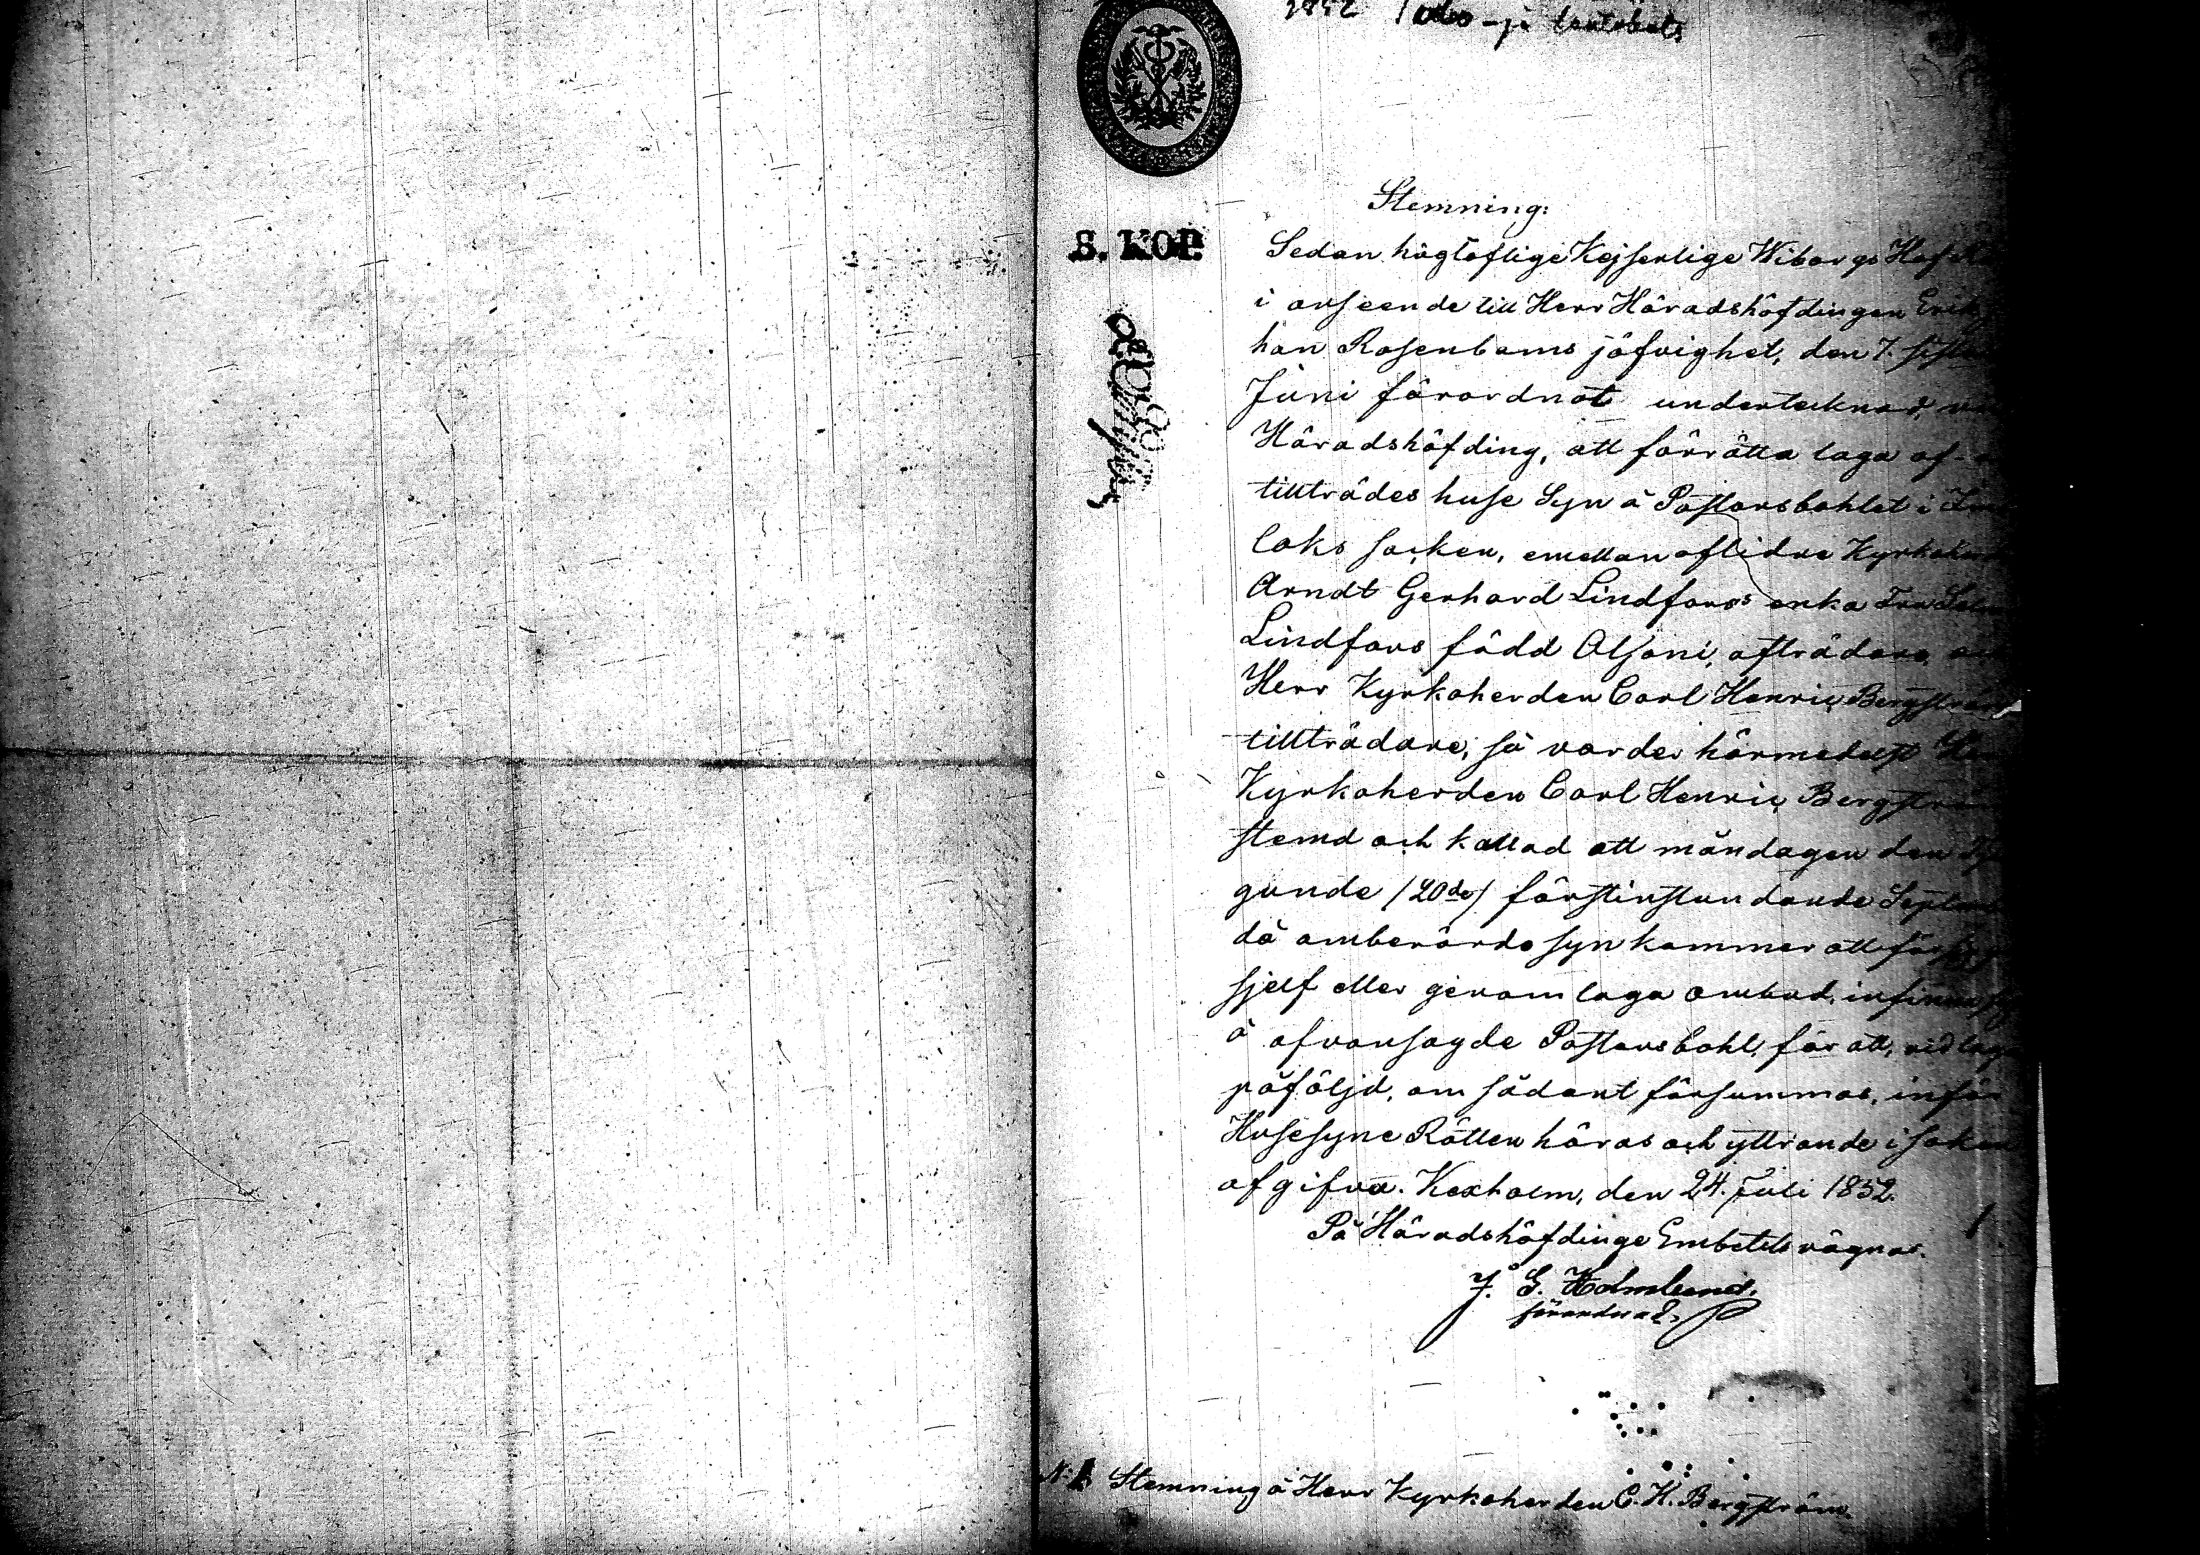 1852
Stemning:
S. KOP.
Sedan höglöflige Kejserlige Wiborgs Hof
i anseende till Herr Häradshöfdingen Erik
han Rosenboms jäfvighet, den 7. sistl
Juni förordnat undertecknad
Häradshöfding, att förrätta laga af-
tillträdes huse Syn å Pastorsbohlet i
laks socken, emellan aflidne Kyrkoher
Arndt Gerhard Lindfors's enka Fru
Lindfors född Alfoni, afträdare,
Herr Kyrkoherden Carl Henric Bergström
tillträdare, så varder härmedelst Herr
Kyrkoherden Carl Henric Bergström
stemd och kallad att måndagen den Tju
gunde /20de/ förstinstundande Septem
då omberörde syn kommer att för
sjelf eller genom laga ombud, infinna sig
å ofvansagde Pastorsbohl, för att, vid laga
påföljd, om sådant försummas, inför
Husesyne Rätten höras och yttrande i saken
afgifva. Kexholm, den 24. Juli 1852.
På Häradshöfdinge Embetets vägnar.
J. G. Holmlund.
förordnad.
N:1 Stemning å Herr Kyrkoherden C. H. Bergström.